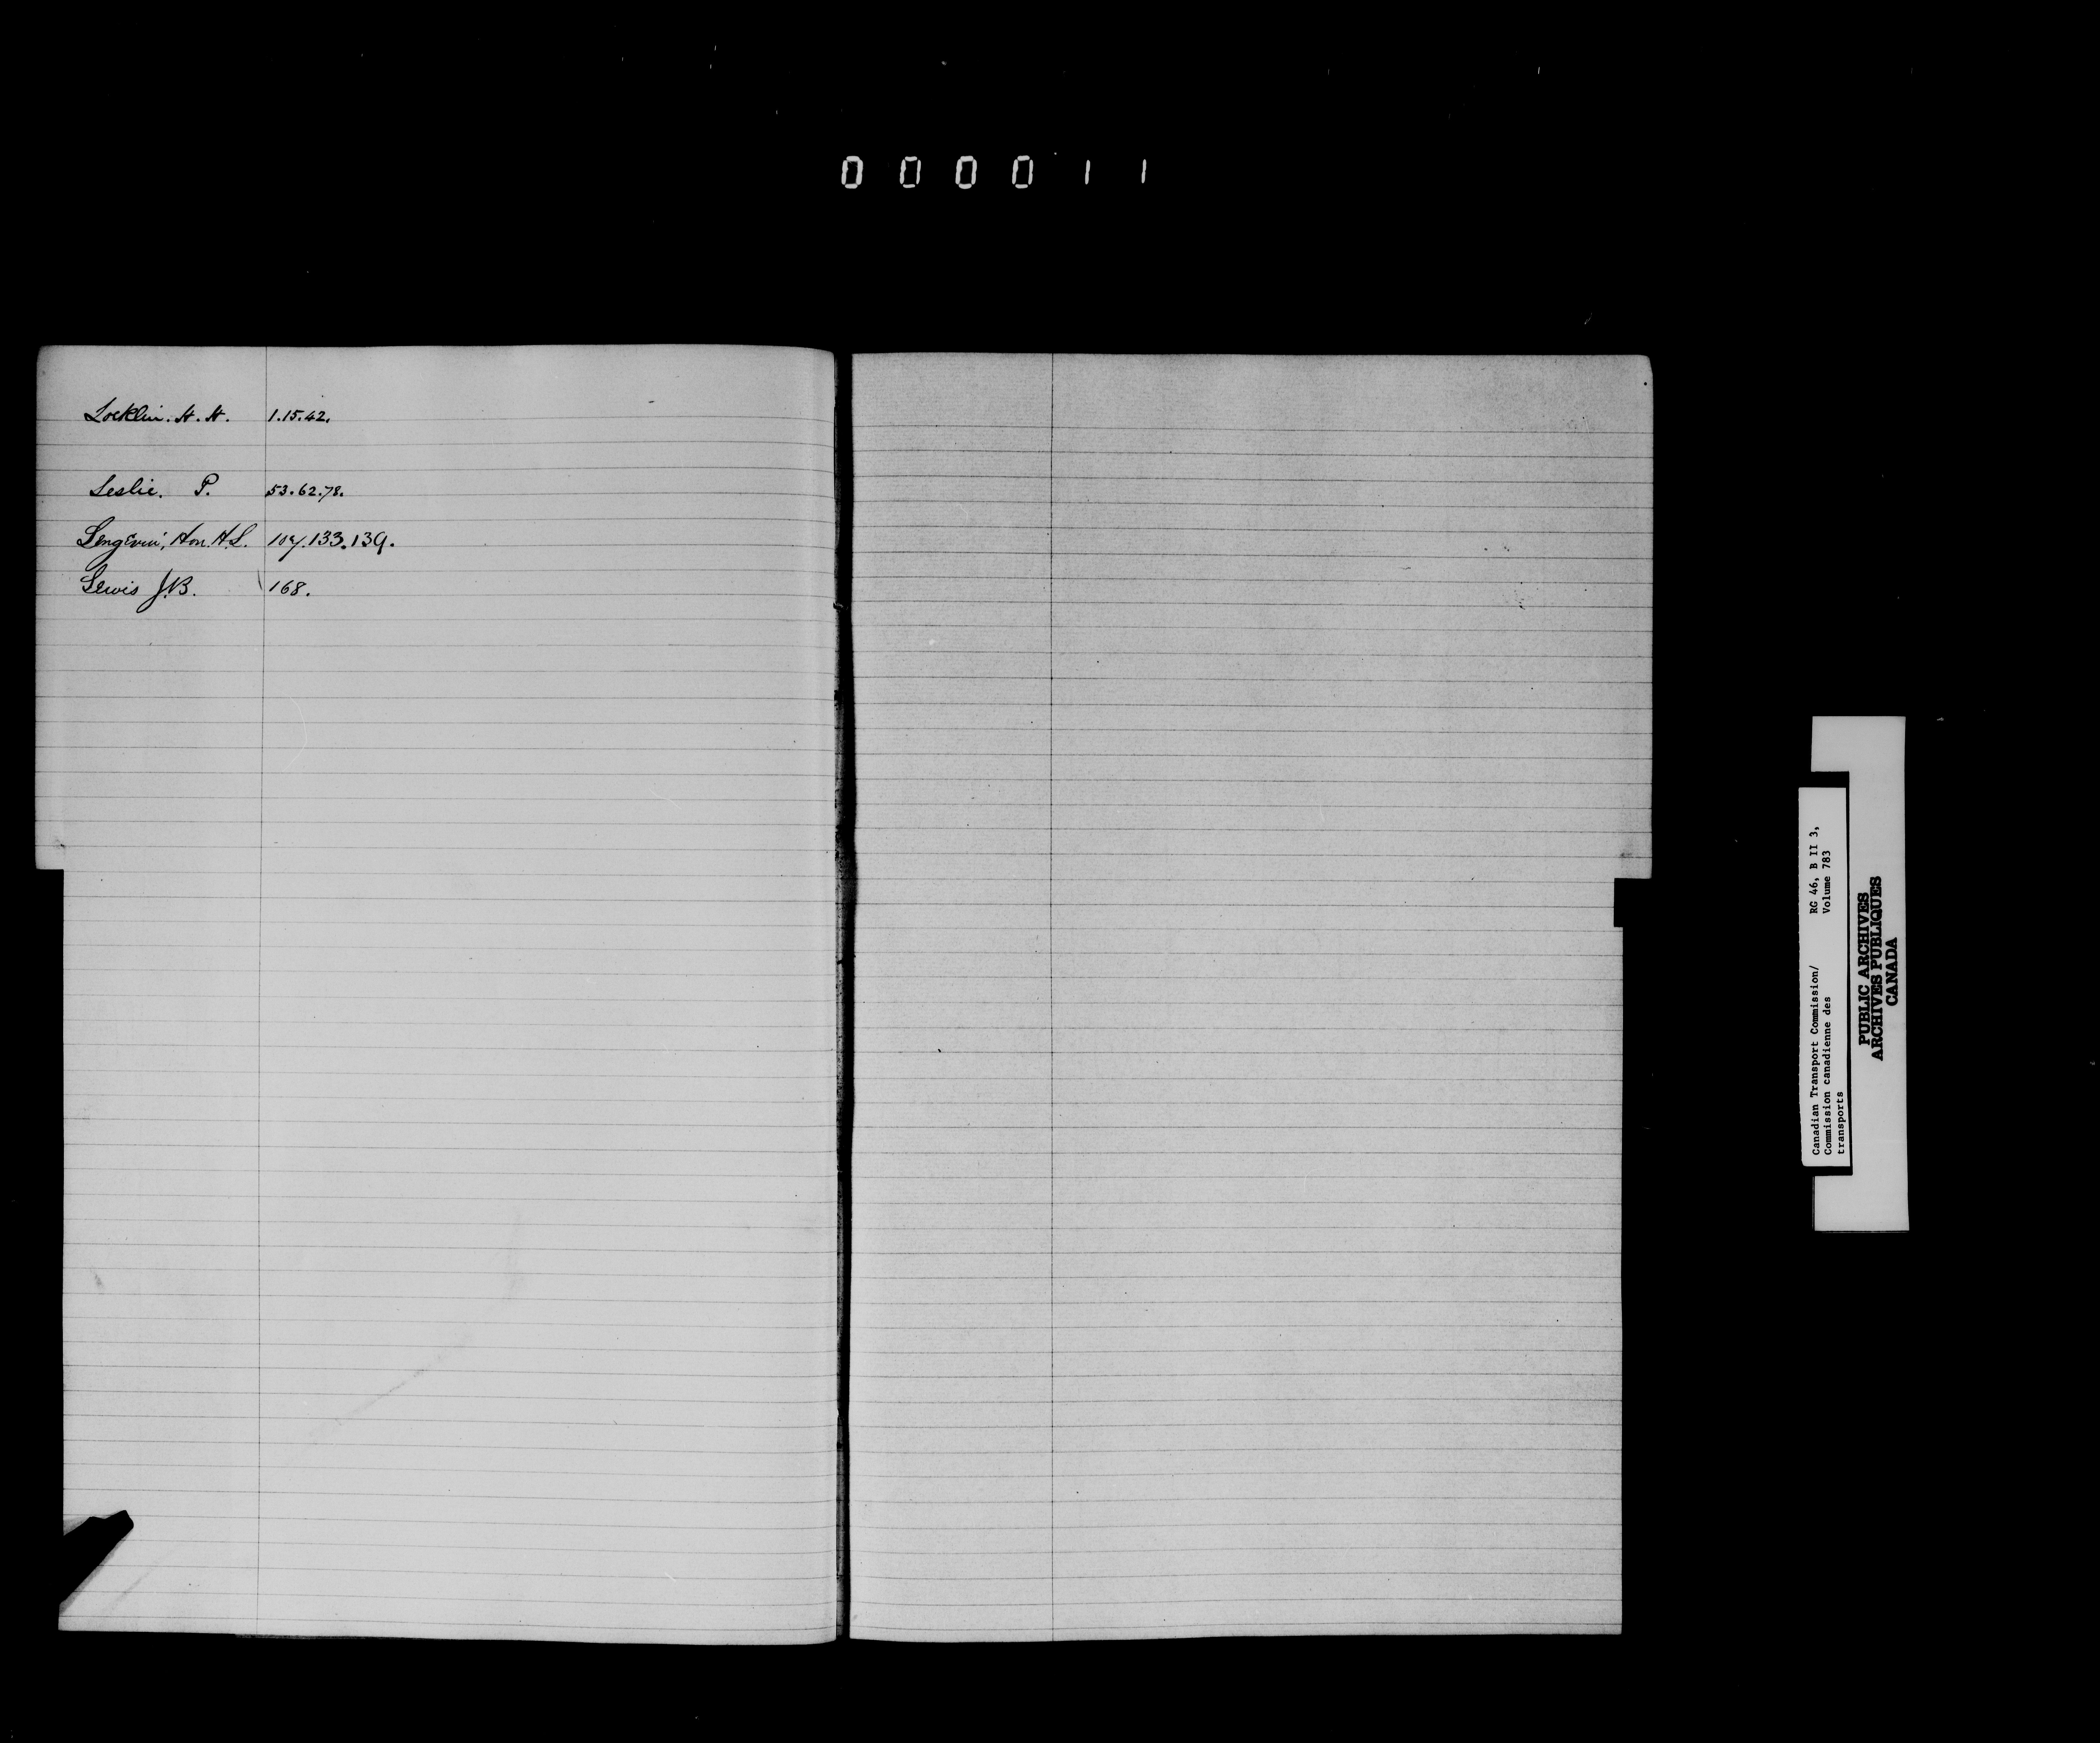 000011
Locklin. H. H. 1.15.42.
Leslie. P. 53.62.78.
Hon. H.L. 133.139.
Lewis J.B. 168.
Canadian Transport Commission/ RG 46, B II 3,
Commission canadienne des Volume 783
transports
PUBLIC ARCHIVES
ARCHIVES PUBLIQUES
CANADA